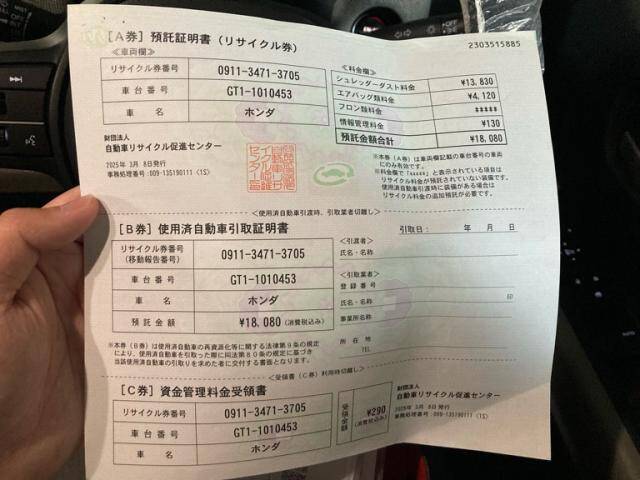 [A券] 預託証明書 (リサイクル券)
2303515885
<車両欄>
リサイクル券番号 0911-3471-3705
車台番号 GT1-1010453
車名 ホンダ
<料金欄>
シュレッダーダスト料金 ¥13,830
エアバッグ類料金 ¥4,120
フロン類料金 *****
情報管理料金 ¥130
預託金額合計 ¥18,080
財団法人
自動車リサイクル促進センター
2025年 3月 8日発行
事務処理番号:009-135190111 (1S)
※本券(A券)は車両欄記載の車台番号の車両
にのみ有効です。
※料金欄で「*****」と表示されている項目は
リサイクル料金が預託されていない装備です。
使用済自動車引渡時に装備がある場合は
リサイクル料金の追加預託が必要です。
<使用済自動車引渡時、引取業者切離し>
[B券] 使用済自動車引取証明書
引取日: 年 月 日
リサイクル券番号
(移動報告番号) 0911-3471-3705
車台番号 GT1-1010453
車名 ホンダ
預託金額 ¥18,080 (消費税込み)
<引渡者>
氏名・名称
<引取業者>
登録番号
氏名・名称
印
事業所名称
所在地
TEL
※本券(B券)は使用済自動車の再資源化等に関する法律第9条の規定
により、使用済自動車を引取った際に同法第80条の規定に基づき
当該使用済自動車の引取りを求めた者に交付する書面となります。
<受領書(C券)利用時切離し>
[C券] 資金管理料金受領書
リサイクル券番号 0911-3471-3705
車台番号 GT1-1010453
車名 ホンダ
受領金額 ¥290 (消費税込み)
財団法人
自動車リサイクル促進センター
2025年 3月 8日発行
事務処理番号:009-135190111 (1S)